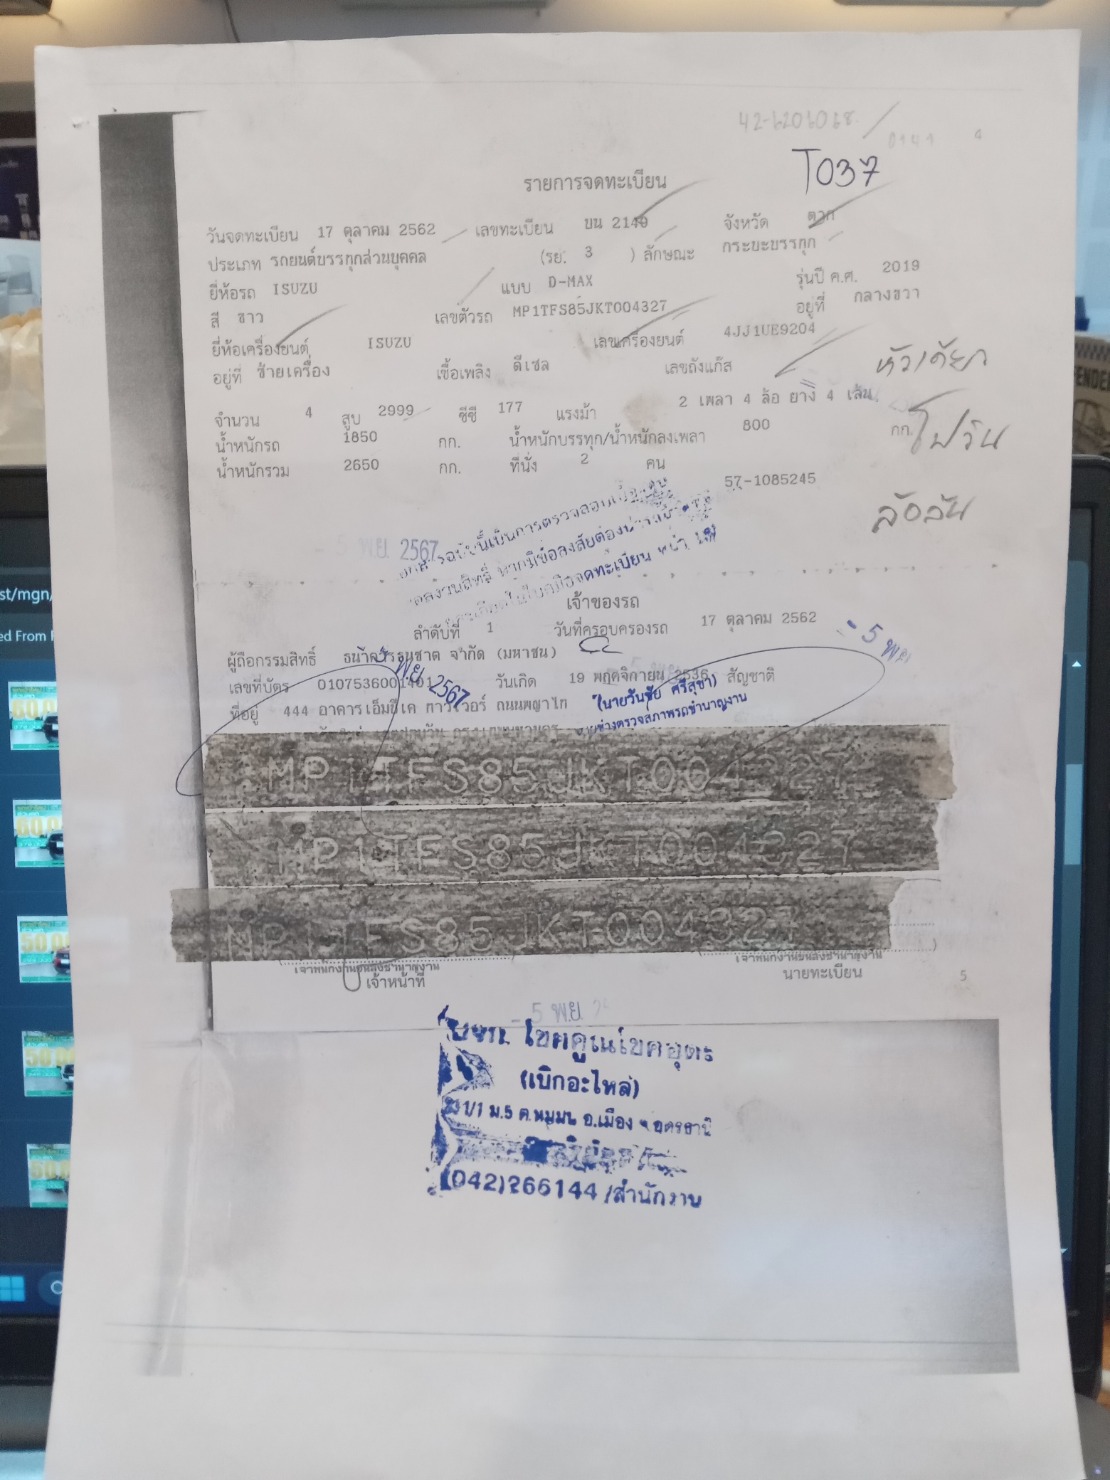 42-6201068
T037
รายการจดทะเบียน
วันจดทะเบียน 17 ตุลาคม 2562 เลขทะเบียน บน 2140 จังหวัด ตาก
ประเภท รถยนต์บรรทุกส่วนบุคคล (รย: 3 ) ลักษณะ กระบะบรรทุก
ยี่ห้อรถ ISUZU แบบ D-MAX รุ่นปี ค.ศ. 2019
สี ขาว เลขตัวรถ MP1TFS85JKT004327 อยู่ที่ กลางขวา
ยี่ห้อเครื่องยนต์ ISUZU เลขเครื่องยนต์ 4JJ1UE9204
อยู่ที่ ซ้ายเครื่อง เชื้อเพลิง ดีเซล เลขถังแก๊ส
หัวเดียว
จำนวน 4 สูบ 2999 ซีซี 177 แรงม้า 2 เพลา 4 ล้อ ยาง 4 เส้น
น้ำหนักรถ 1850 กก. น้ำหนักบรรทุก/น้ำหนักลงเพลา 800 กก.
น้ำหนักรวม 2650 กก. ที่นั่ง 2 คน
57-1085245
5 พ.ย. 2567
เจ้าของรถ
ลำดับที่ 1 วันที่ครอบครองรถ 17 ตุลาคม 2562
- 5 พ.ย.
ผู้ถือกรรมสิทธิ์ ธนาคารธนชาต จำกัด (มหาชน)
เลขที่บัตร 0107536001401 วันเกิด 19 พฤศจิกายน 2536 สัญชาติ
พ.ย. 2567
(นายวันชัย ศรีสุชา)
ที่อยู่ 444 อาคารเอ็มบีเค ทาวเวอร์ ถนนพญาไท
นายช่างตรวจสภาพรถชำนาญงาน
MP1TFS85JKT004327
MP1TFS85JKT004327
MP1TFS85JKT004327
เจ้าพนักงานขนส่งชำนาญงาน เจ้าพนักงานขนส่งชำนาญงาน
เจ้าหน้าที่ นายทะเบียน
5
- 5 พ.ย.
โชคคูณโชคอุดร
(เบิกอะไหล่)
1/1 ม.5 ต.หมูม่น อ.เมือง จ.อุดรธานี
(042)266144/สำนักงาน